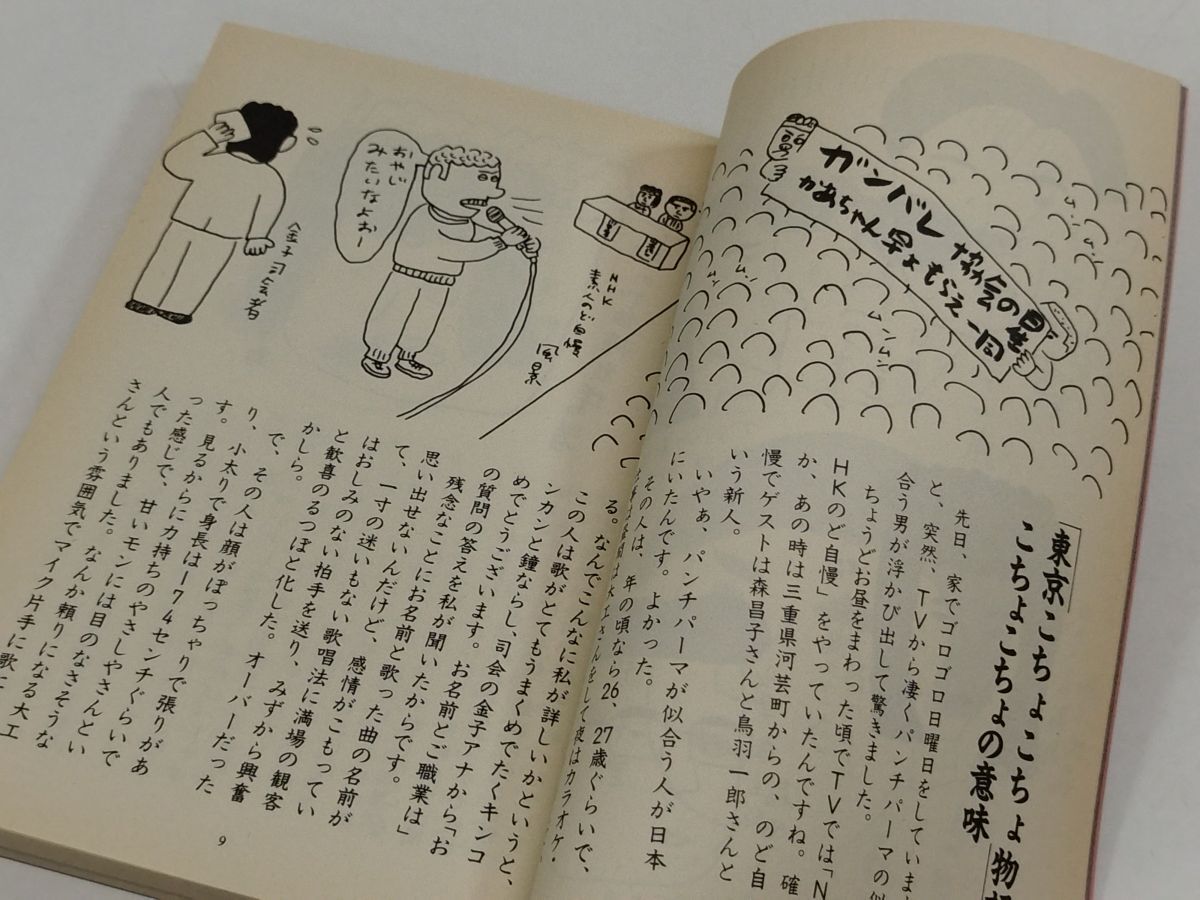 ガンバレ 協会の星
かあちゃん早よもらえ一同
ムンムン
「東京こちょこちょ物
こちょこちょの意味
先日、家でゴロゴロ日曜日をしていま
と、突然、TVから凄くパンチパーマの似
合う男が浮かび出して驚きました。
ちょうどお昼をまわった頃でTVでは「N
HKのど自慢」をやっていたんですね。確
か、あの時は三重県河芸町からの、のど自
慢でゲストは森昌子さんと鳥羽一郎さんと
いう新人。
いやぁ、パンチパーマが似合う人が日本
にいたんです。よかった。
その人は、年の頃なら26、27歳ぐらいで、
大工さんをして夜はカラオケ・
る。なんでこんなに私が詳しいかというと、
この人は歌がとてもうまくめでたくキンコ
ンカンと鐘ならし、司会の金子アナから「お
めでとうございます。お名前とご職業は」
の質問の答えを私が聞いたからです。
残念なことにお名前と歌った曲の名前が
思い出せないんだけど、感情がこもってい
て、一寸の迷いもない歌唱法に満場の観客
はおしみのない拍手を送り、みずから興奮
と歓喜のるつぼと化した。オーバーだった
かしら。
で、その人は顔がぽっちゃりで張りがあ
り、小太りで身長は174センチぐらいで
す。見るからに力持ちのやさしやさんとい
った感じで、甘いモンには目のなさそうな
人でもありました。なんか頼りになる大工
さんという雰囲気でマイク片手に歌に
NHK
素人のど自慢
風景
おやじ
みたいなよおー
金子司会者
9